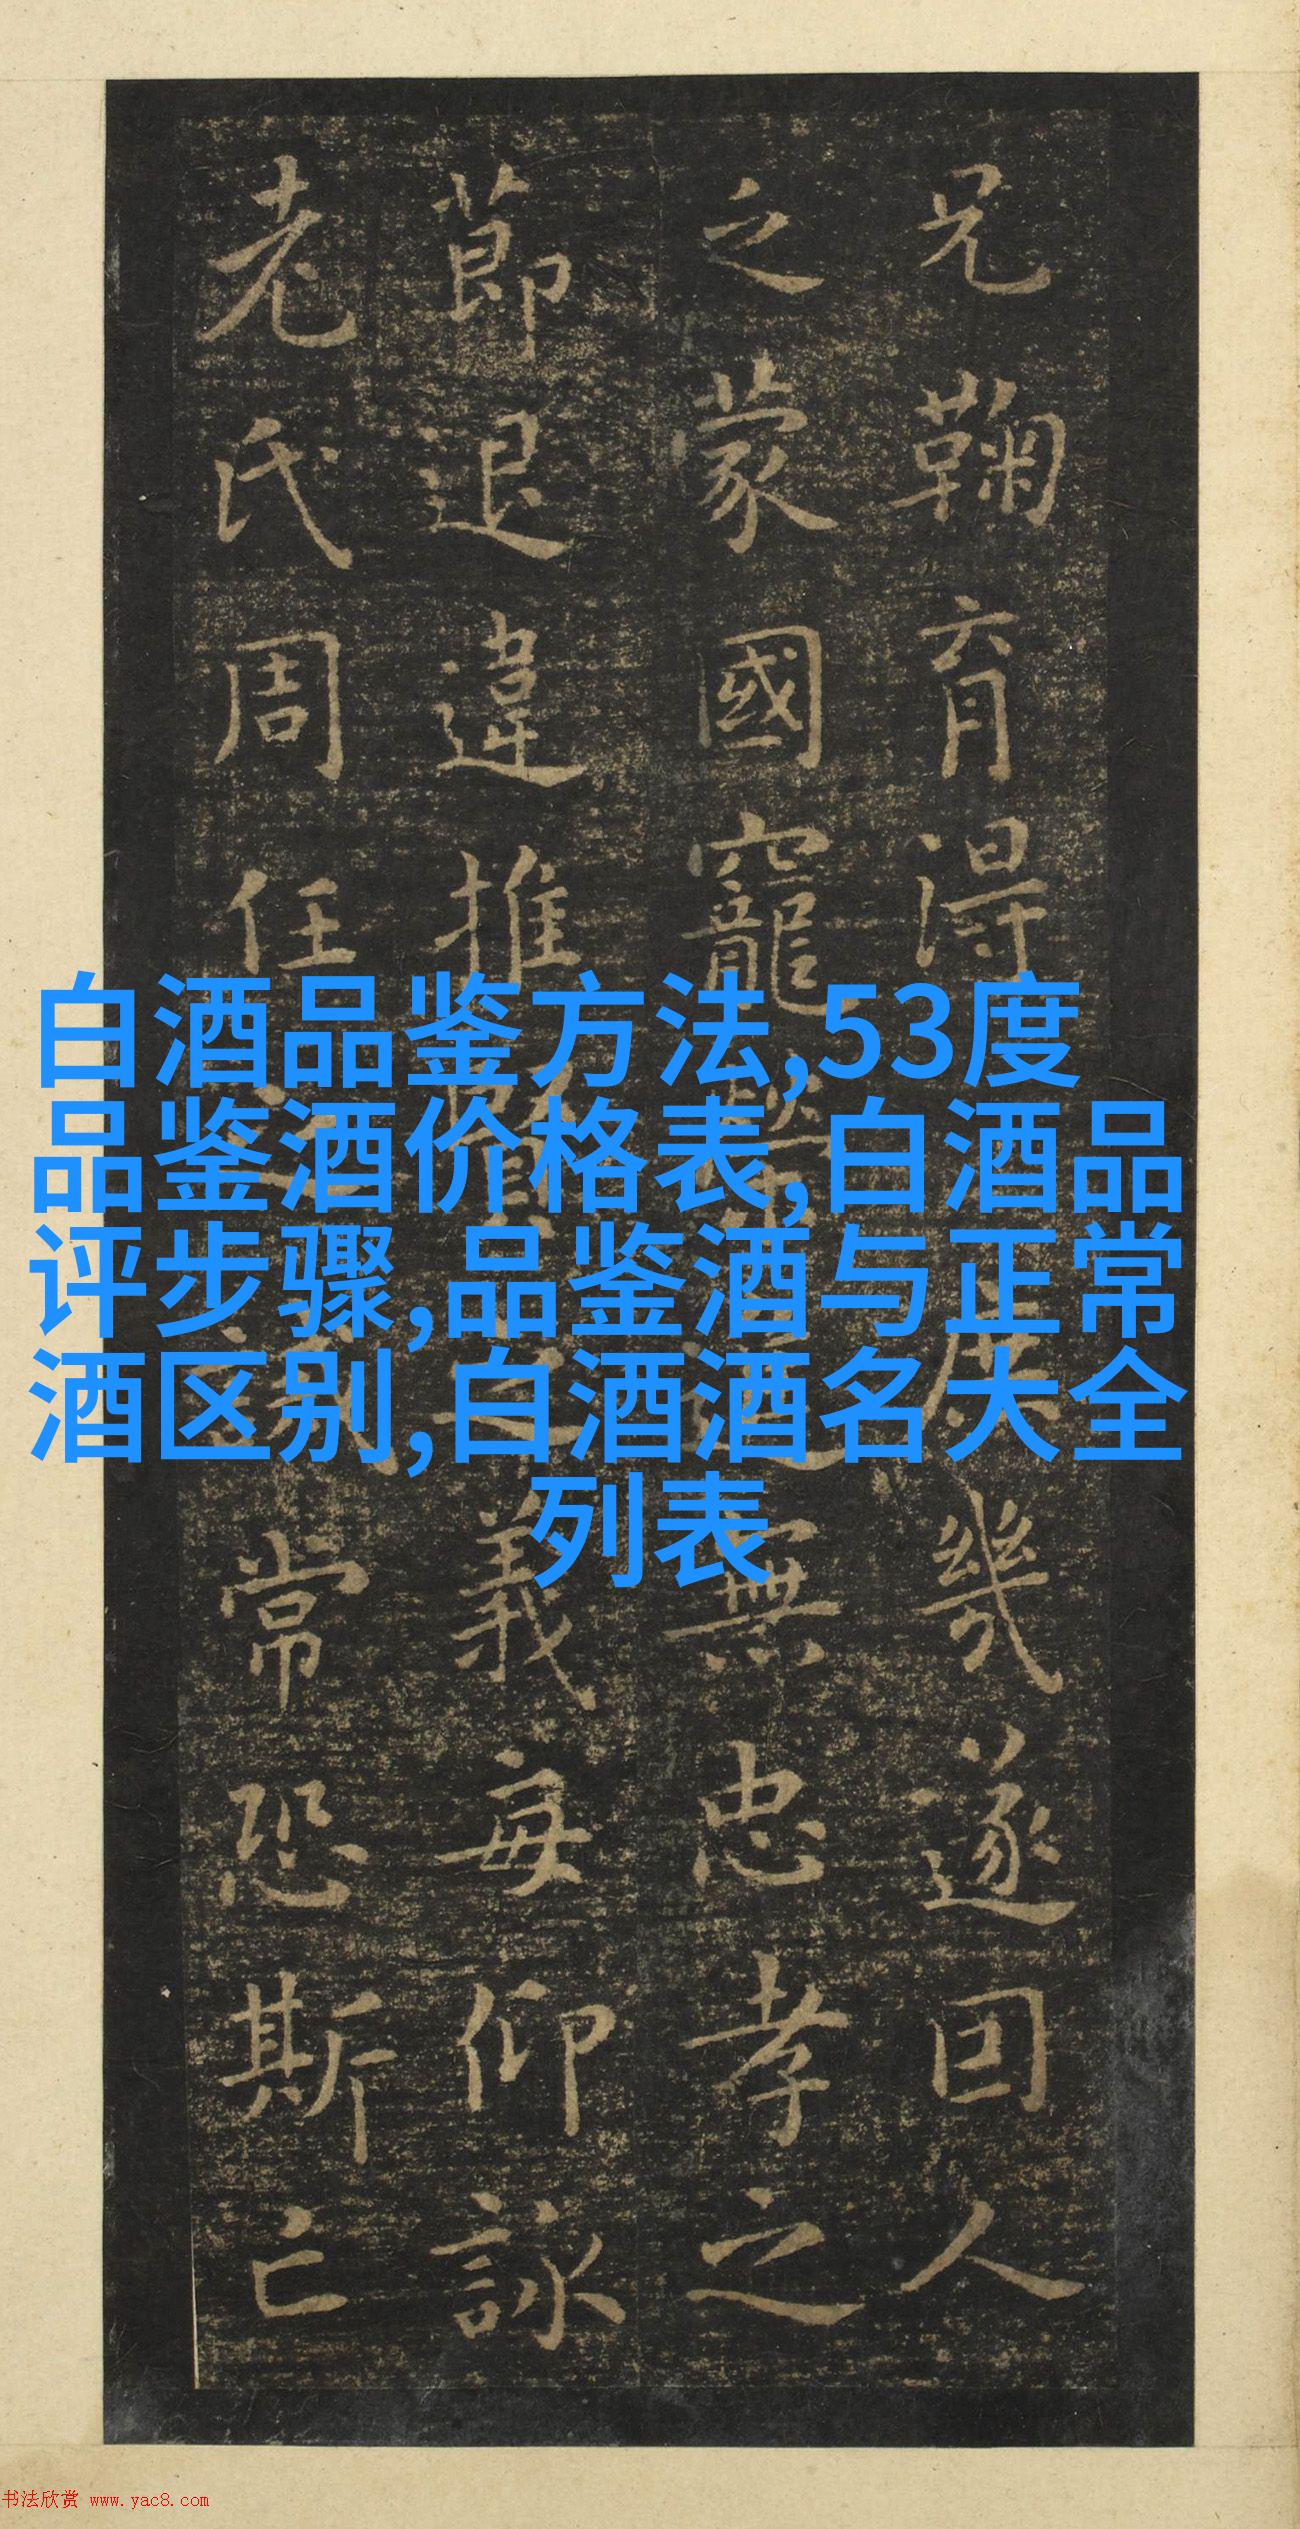 兄鞠育得
庶幾遂回人
之蒙國寵
無忠孝之
莭退違推
之義每仰詠
老氏周任
常恐斯亡
白酒品鉴方法,53度
品鉴酒价格表,白酒品
评步骤,品鉴酒与正常
酒区别,白酒酒名大全
列表
书法欣赏 www.yac8.com